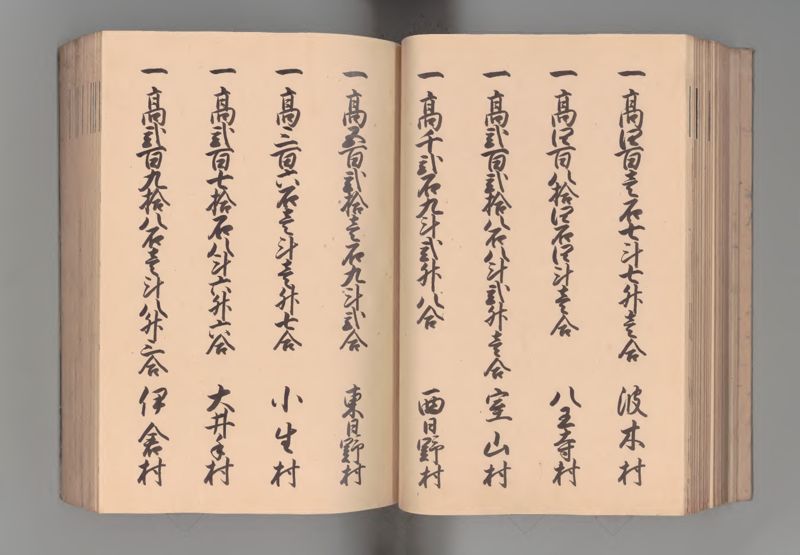 一高四百壱石七斗七升壱合 波木村
一高四百八拾四石四斗壱合 八王寺村
一高弐百弐拾八石八斗弐升壱合 室山村
一高千弐石九斗弐升八合 西日野村
一高五百弐拾壱石九斗弐合 東日野村
一高三百六石壱斗壱升七合 小生村
一高弐百七拾石八斗六升六合 大井手村
一高弐百九拾八石壱斗八升三合 伊倉村